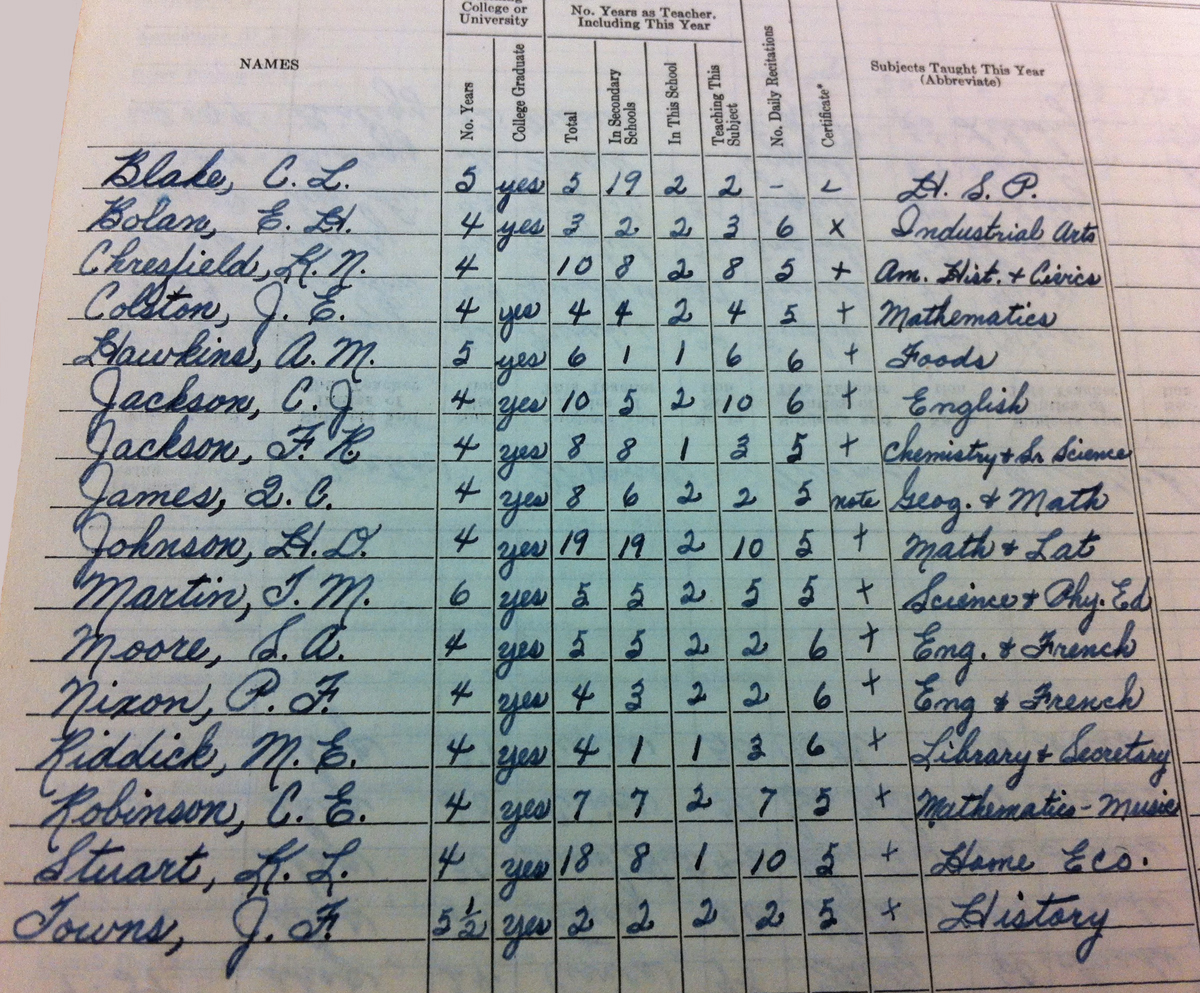 College or University
No. Years as Teacher, Including This Year
NAMES
No. Years
College Graduate
Total
In Secondary Schools
In This School
Teaching This Subject
No. Daily Recitations
Certificate*
Subjects Taught This Year (Abbreviate)
Blake, C. L. 5 yes 5 19 2 2 - H. S. P.
Bolan, E. H. 4 yes 3 2 2 3 6 x Industrial Arts
Chresfield, K. N. 4 10 8 2 8 5 + Am. Hist. + Civics
Colston, J. E. 4 yes 4 4 2 4 5 + Mathematics
Hawkins, A. M. 5 yes 6 1 1 6 6 + Foods
Jackson, C. J. 4 yes 10 5 2 10 6 + English
Jackson, F. R 4 yes 8 8 1 3 5 + Chemistry + Sr Science
James, Q. C. 4 yes 8 6 2 2 5 note Geog. + Math
Johnson, H. D. 4 yes 19 19 2 10 5 + Math + Lat
Martin, T. M. 6 yes 5 5 2 5 5 + Science + Phy. Ed
Moore, S. A. 4 yes 5 5 2 2 6 + Eng. + French
Nixon, P. F. 4 yes 4 3 2 2 6 + Eng + French
Riddick, M. E. 4 yes 4 1 1 3 6 + Library + Secretary
Robinson, C. E. 4 yes 7 7 2 7 5 + Mathematics - Music
Stuart, K. L. 4 yes 18 8 1 10 5 + Home Eco.
Towns, J. F. 5 1/2 yes 2 2 2 2 5 x History